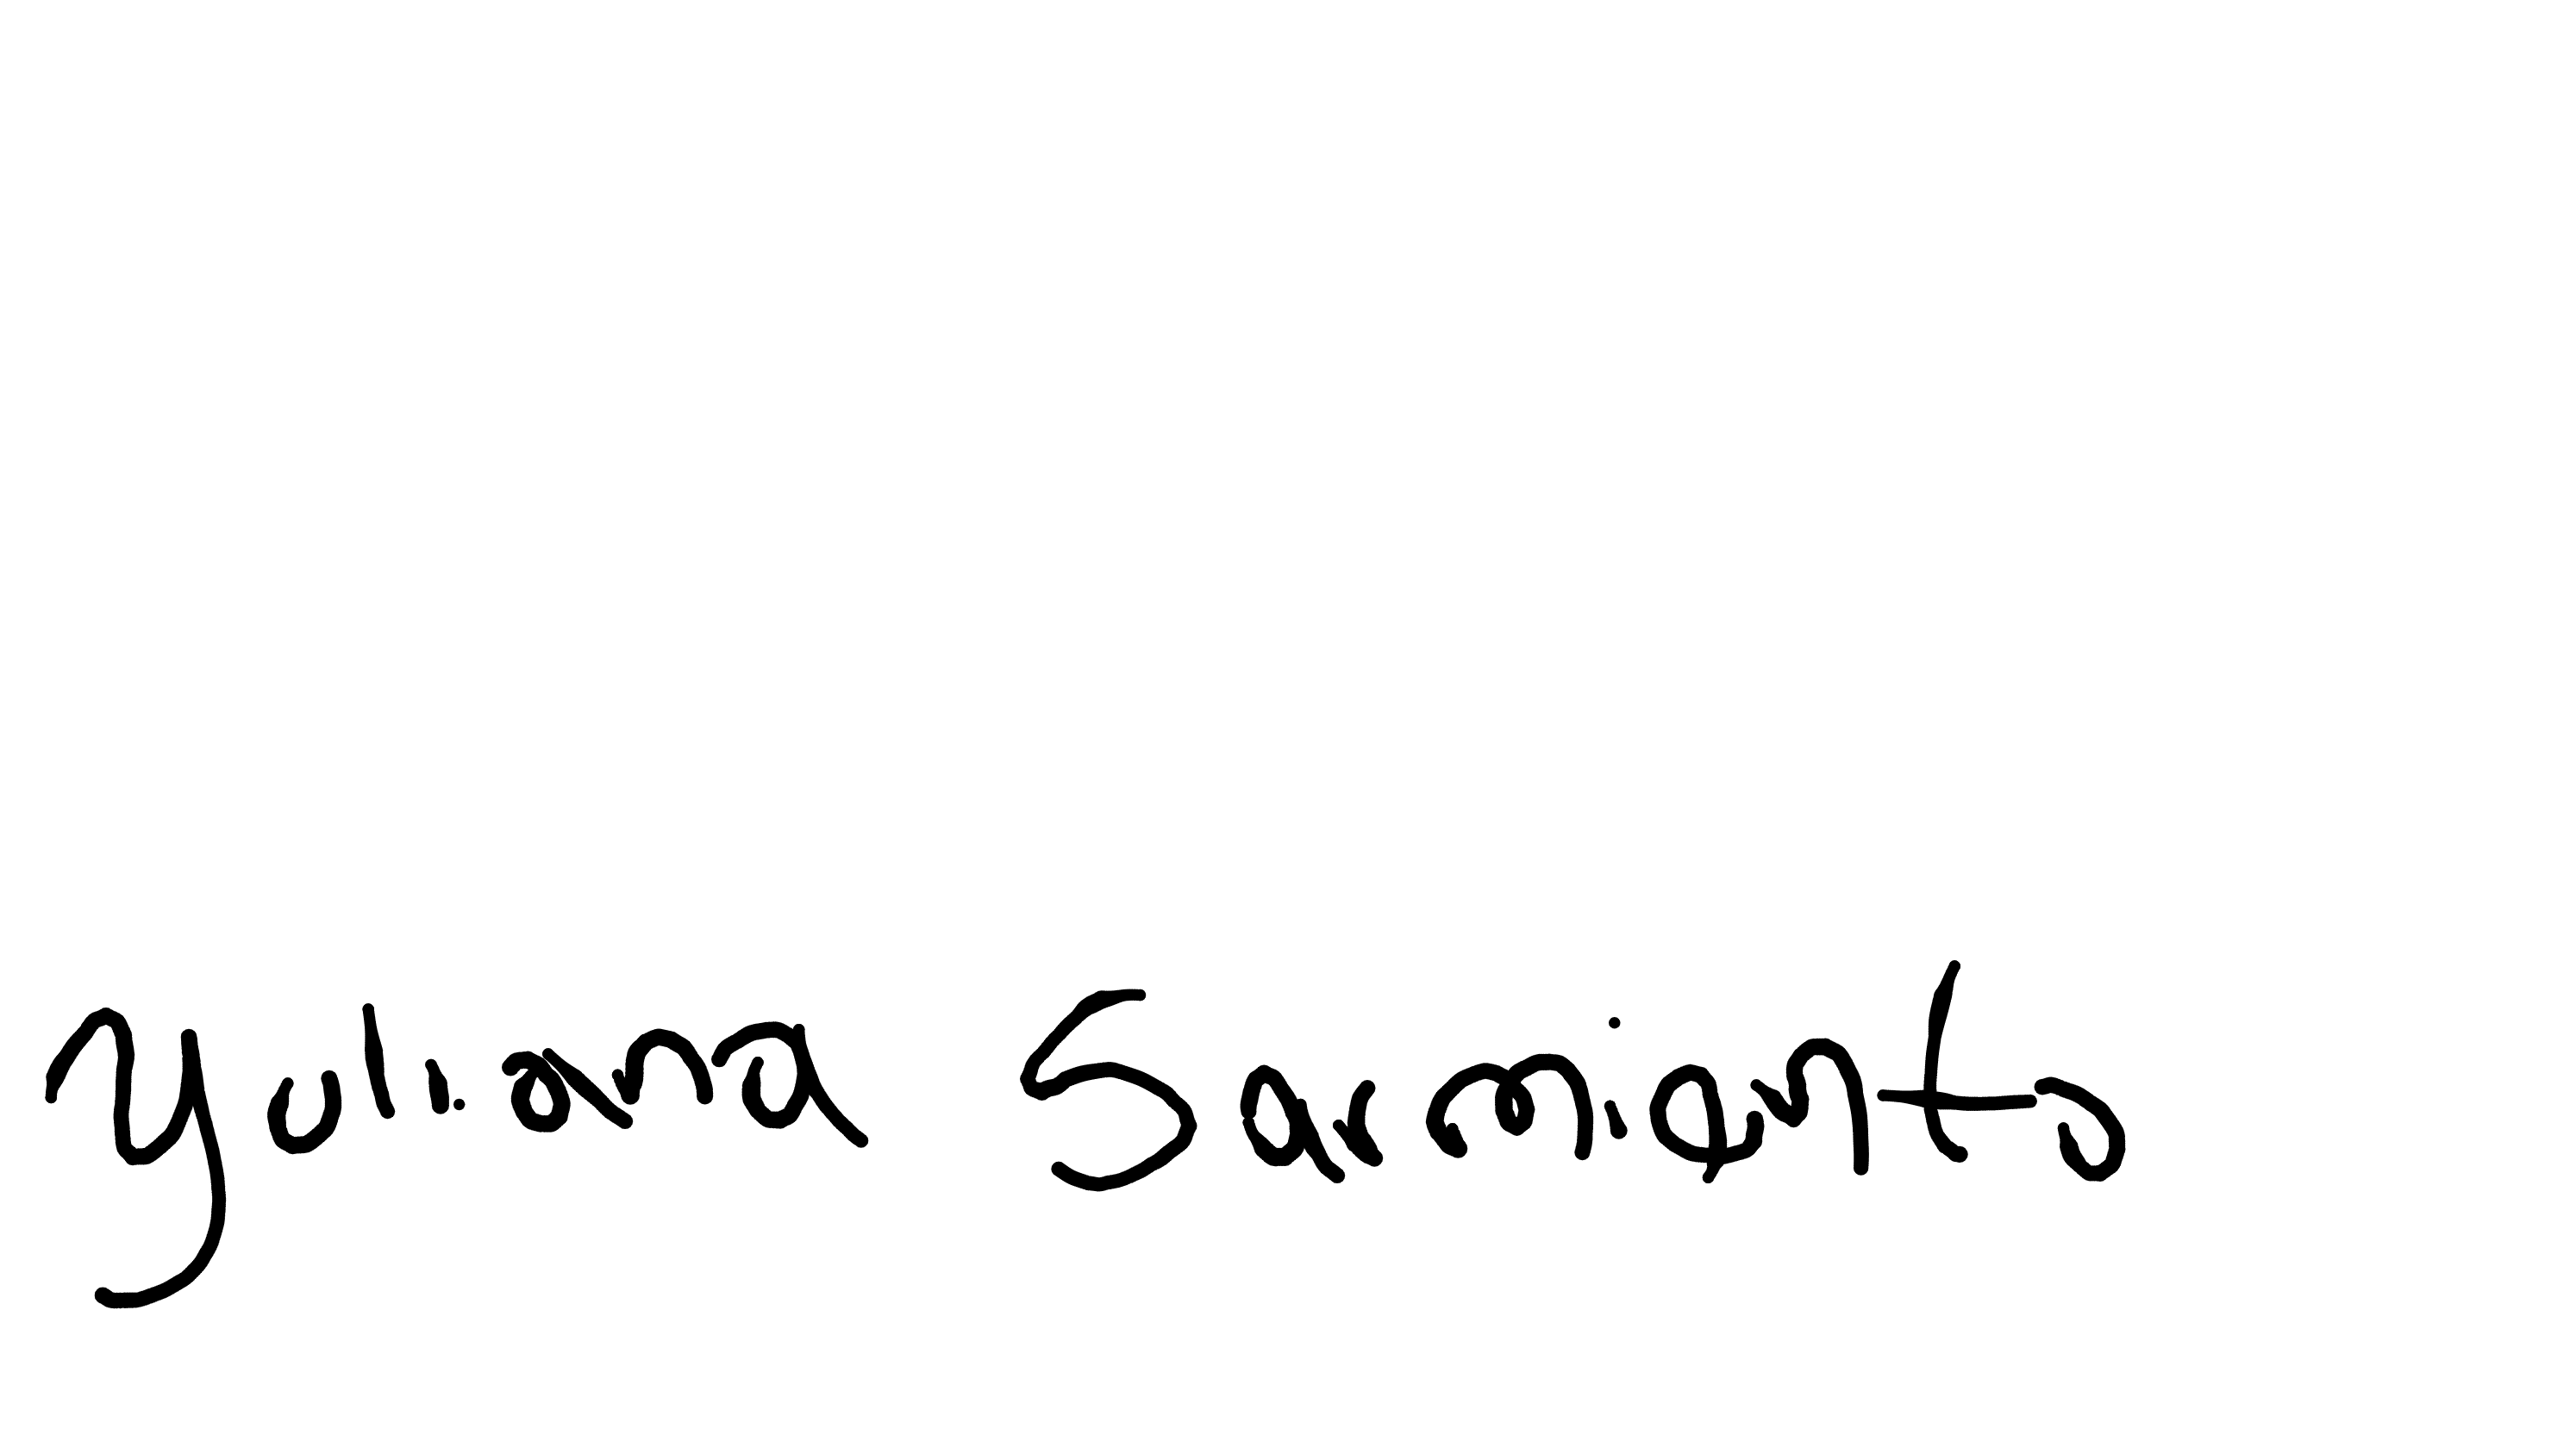 Yuliana Sarmiento